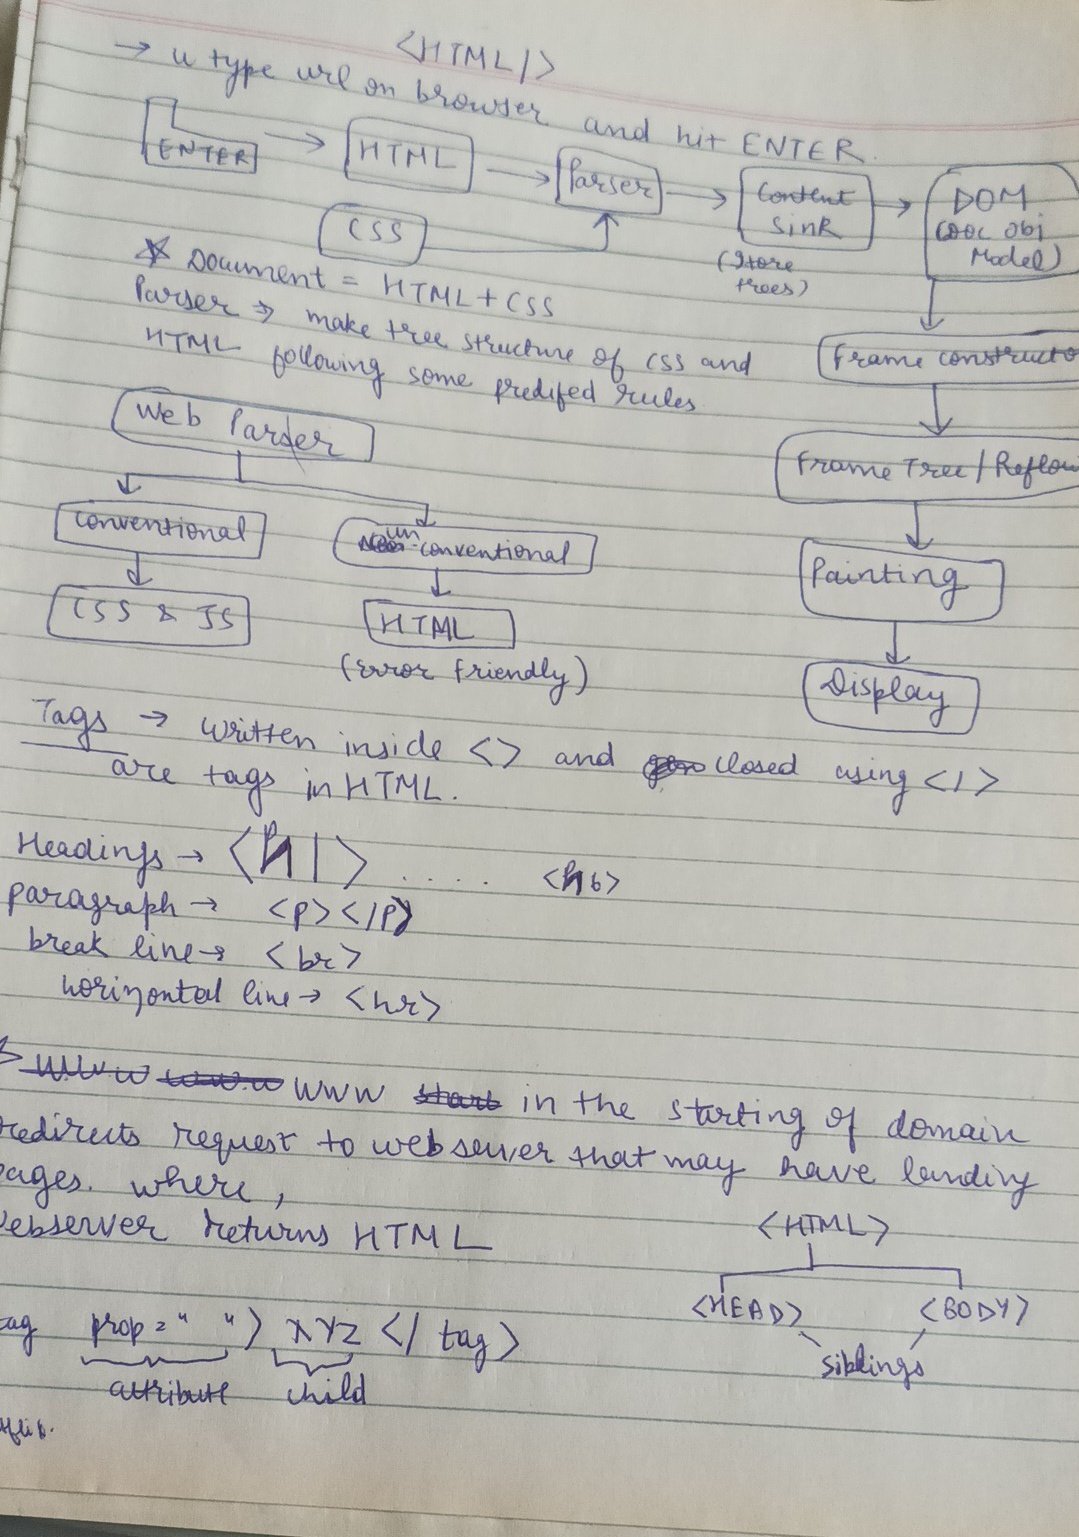 <HTML/>
→ u type url on browser and hit ENTER.
ENTER → HTML → Parser → Content Sink → DOM
CSS
(Store trees)
(DOC Obj Model)
* Document = HTML + CSS
Parser → make tree structure of CSS and
HTML following some predifed rules.
Frame constructo
Web Parser
Frame Tree / Reflow
Conventional
un-conventional
Painting
CSS & JS
HTML
(Error Friendly)
Display
Tags → written inside <> and closed using </>
are tags in HTML.
Headings → <h1> ..... <h6>
paragraph → <p></p>
break line → <br>
horizontal line → <hr>
WWW in the starting of domain
redirects request to web server that may have landing
pages. where,
webserver returns HTML
<HTML>
<HEAD> <BODY>
siblings
tag prop = " " > XYZ </ tag>
attribute child